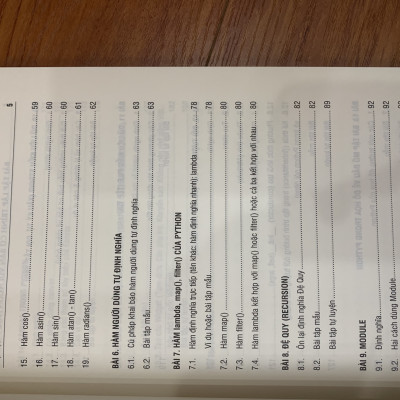 5
15. Hàm cos()......59
16. Hàm asin()......60
17. Hàm sin()......60
18. Hàm atan() - tan()......61
19. Hàm radians()......62
BÀI 6. HÀM NGƯỜI DÙNG TỰ ĐỊNH NGHĨA
6.1. Cú pháp khai báo hàm người dùng tự định nghĩa......63
6.2. Bài tập mẫu......63
BÀI 7. HÀM lambda, map(), filter() CỦA PYTHON
7.1. Hàm định nghĩa trực tiếp (tên khác: hàm định nghĩa nhanh): lambda......78
Ví dụ hoặc bài tập mẫu......78
7.2. Hàm map()......80
7.3. Hàm filter()......80
7.4. Hàm lambda kết hợp với map() hoặc filter() hoặc cả ba kết hợp với nhau......80
BÀI 8. ĐỆ QUY (RECURSION)
8.1. Ôn lại định nghĩa Đệ Quy......82
8.2. Bài tập mẫu......82
Bài tập tự luyện......89
BÀI 9. MODULE
9.1. Định nghĩa......92
9.2. Hai cách dùng Module......92